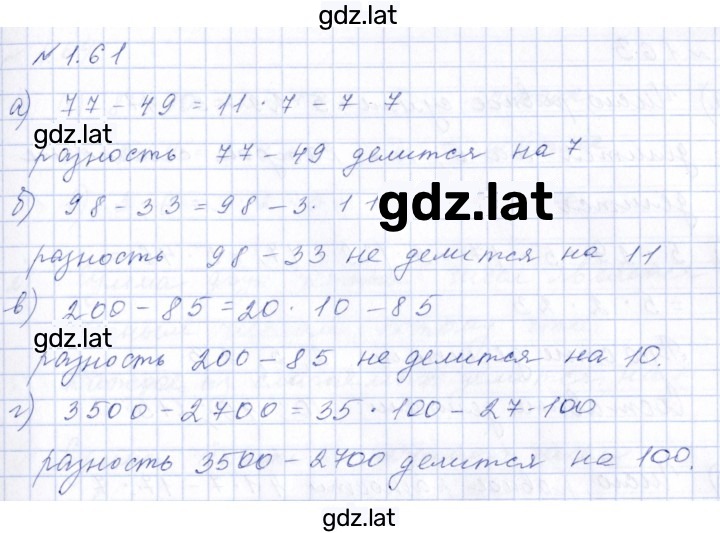 gdz.lat
№ 1.61
а) 77 - 49 = 11 · 7 - 7 · 7
gdz.lat
разность 77 - 49 делится на 7
б) 98 - 33 = 98 - 3 · 11
gdz.lat
разность 98 - 33 не делится на 11
в) 200 - 85 = 20 · 10 - 85
gdz.lat
разность 200 - 85 не делится на 10.
г) 3500 - 2700 = 35 · 100 - 27 · 100
разность 3500 - 2700 делится на 100.
gdz.lat